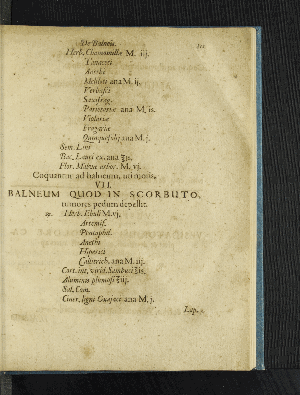 De Balneis.
Herb. Chamomillæ M. iij.
Tanaceti
Anethi
Meliloti ana M. ij.
Verbasci
Saxifrag.
Parietariæ ana M. is.
Violariæ
Fragariæ
Quinquefolij ana M. j.
Sem. Lini
Bac. Lauri ex. ana ℥ii.
Flor. Malvæ arbor. M. vi.
Coquantur ad balneum, ut moris.
VII.
BALNEUM QUOD IN SCORBUTO,
tumores pedum depellit.
℞. Herb. Ebuli M. vj.
Artemis.
Pentaphil.
Anethi
Hyperici
ana M. iij.
Cort. int. virid. Sambuci ℥is.
Aluminis plumosi ℥iij.
Sal. Com.
Ciner. ligni Guajaci ana M. j.
Lap.